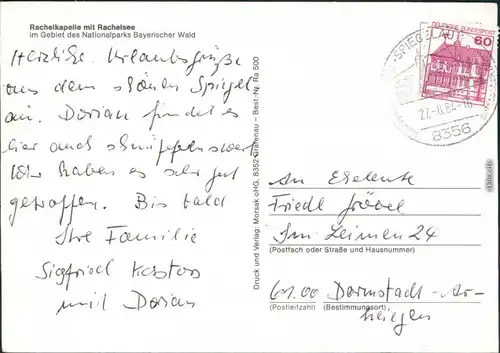 Rachelkapelle mit Rachelsee
im Gebiet des Nationalparks Bayerischer Wald
Herzliche Urlaubsgrüße
aus dem schönen Spiegel-
au. Dorian findet es
hier auch
Wir haben es sehr gut
getroffen. Bis bald
Ihre Familie
Siegfried
und Dorian
Druck und Verlag: Morsak oHG, 8352 Grafenau – Best.-Nr. Ra 500
SPIEGELAU
27.-8.84-16
8356
DEUTSCHE BUNDESPOST
60
An Eheleute
Friedl
Im Leimen 24
(Postfach oder Straße und Hausnummer)
6100 Darmstadt-Ar-
heilgen
(Postleitzahl) (Bestimmungsort)